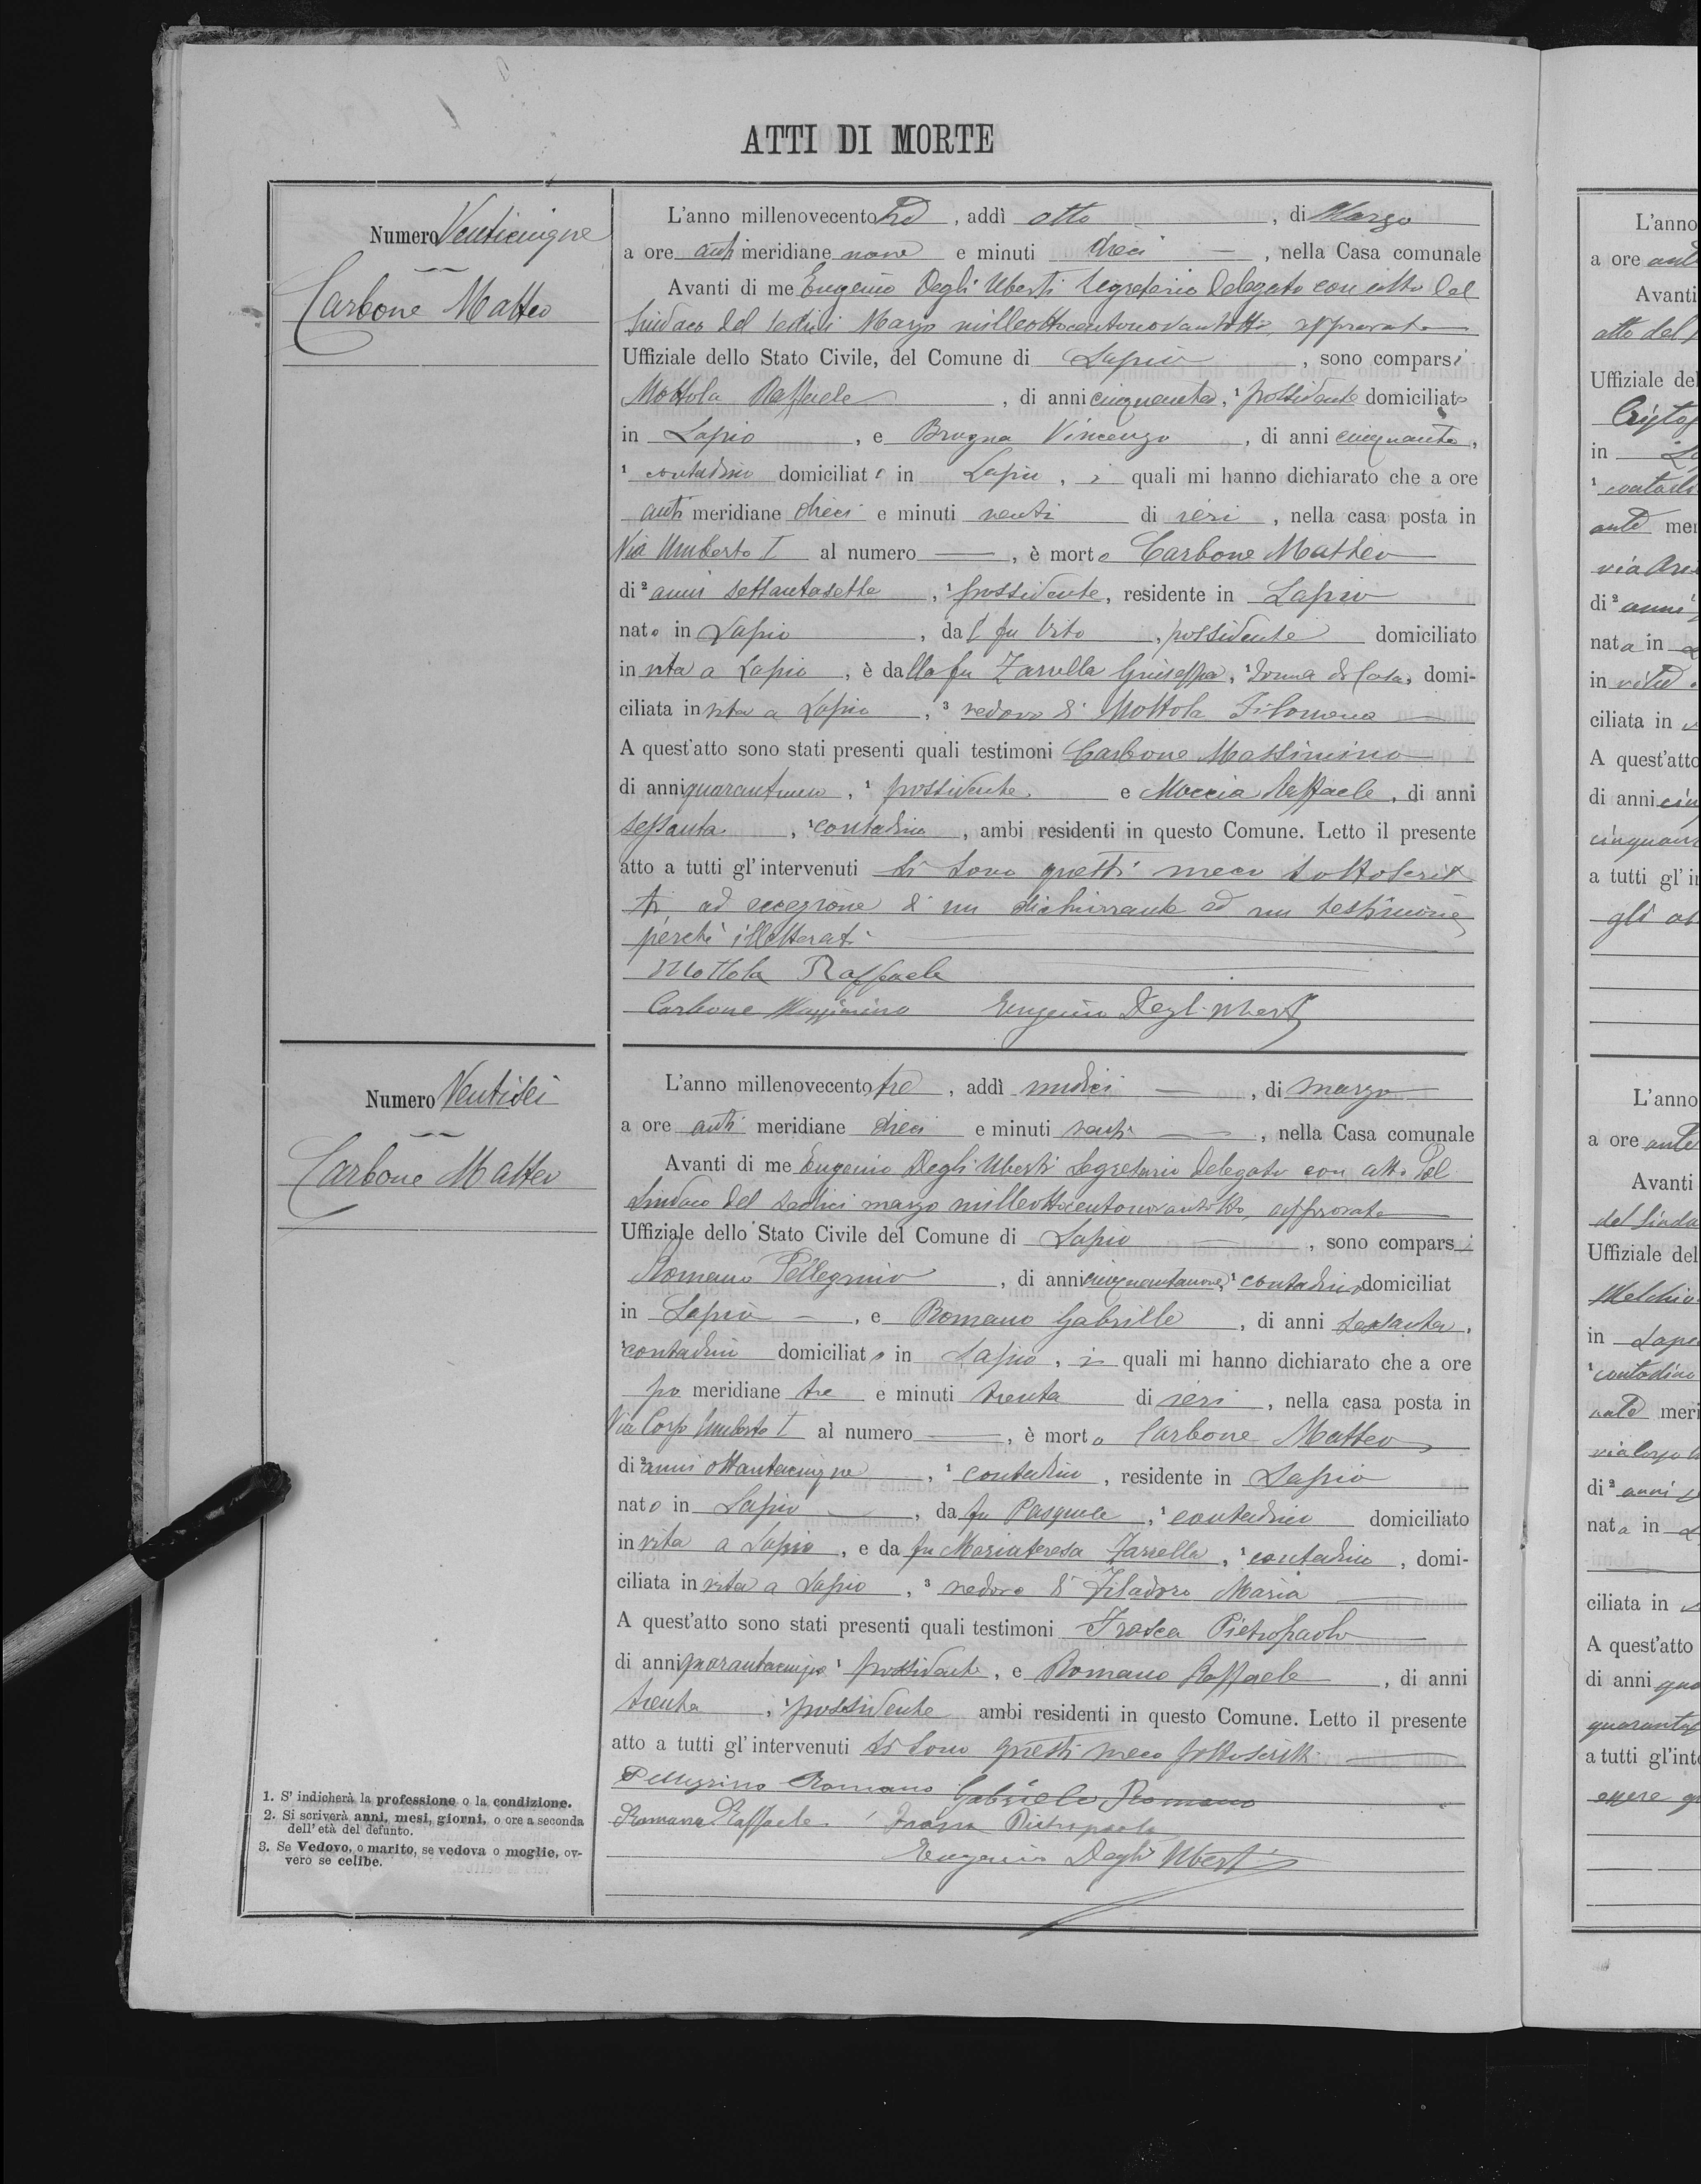 ATTI DI MORTE
Numero Venticinque
Carbone Matteo
L'anno millenovecento tre, addì otto, di Marzo
a ore anti meridiane nove e minuti dieci, nella Casa comunale
Avanti di me Eugenio Degli Uberti Segretario delegato con atto del
Sindaco del sedici Marzo milleottocentonovantotto, approvato
Uffiziale dello Stato Civile, del Comune di Lapio, sono comparsi
Mottola Raffaele, di anni cinquanta, ¹ possidente domiciliato
in Lapio, e Brogna Vincenzo, di anni cinquanta,
¹ contadino domiciliato in Lapio, i quali mi hanno dichiarato che a ore
anti meridiane dieci e minuti venti di ieri, nella casa posta in
Via Umberto I al numero —, è morto Carbone Matteo
di ² anni settantasette, ¹ possidente, residente in Lapio
nato in Lapio, dal fu Vito, possidente domiciliato
in vita a Lapio, è dalla fu Zarrella Giuseppa, ¹ donna di Casa, domi-
ciliata in vita a Lapio, ³ vedovo di Mottola Filomena
A quest'atto sono stati presenti quali testimoni Carbone Massimino
di anni quarantuno, ¹ possidente e Moccia Raffaele, di anni
sessanta, ¹ contadino, ambi residenti in questo Comune. Letto il presente
atto a tutti gl'intervenuti si sono questi meco sottoscrit
ti, ad eccezione di un dichiarante ed un testimone
perchè illetterati
Mottola Raffaele
Carbone Massimino Eugenio Degli Uberti
Numero Ventisei
Carbone Matteo
L'anno millenovecento tre, addì undici —, di marzo
a ore anti meridiane dieci e minuti venti —, nella Casa comunale
Avanti di me Eugenio Degli Uberti Segretario delegato con atto del
Sindaco del sedici marzo milleottocentonovantotto, approvato
Uffiziale dello Stato Civile del Comune di Lapio, sono comparsi
Romano Pellegrino, di anni cinquantanove, ¹ contadino domiciliat
in Lapio —, e Romano Gabriele, di anni sessanta,
¹ contadino domiciliato in Lapio, i quali mi hanno dichiarato che a ore
po meridiane tre e minuti trenta di ieri, nella casa posta in
Via Corso Umberto I al numero —, è morto Carbone Matteo
di ² anni ottantacinque, ¹ contadino, residente in Lapio
nato in Lapio, da fu Pasquale, ¹ contadino domiciliato
in vita a Lapio, e da fu Mariateresa Zarrella, ¹ contadina, domi-
ciliata in vita a Lapio, ³ vedovo di Filadoro Maria
A quest'atto sono stati presenti quali testimoni Frasca Pietropaolo
di anni quarantacinque ¹ possidente, e Romano Raffaele, di anni
trenta, ¹ possidente ambi residenti in questo Comune. Letto il presente
atto a tutti gl'intervenuti si sono questi meco sottoscritti
Pellegrino Romano Gabriele Romano
Romano Raffaele Frasca Pietropaolo
Eugenio Degli Uberti
1. S'indicherà la professione o la condizione.
2. Si scriverà anni, mesi, giorni, o ore a seconda
dell'età del defunto.
3. Se Vedovo, o marito, se vedova o moglie, ov-
vero se celibe.
L'anno
a ore ante
Avanti
atto del
Uffiziale del
in
¹
ante mer
via
di ² anni
nata in
in vita
ciliata in
A quest'atto
di anni
a tutti gl'i
L'anno
a ore ante
Avanti
del Sinda
Uffiziale del
Melchio
in Lapi
¹ contadino
meri
via Corso
di ² anni
nata in
ciliata in
A quest'atto
di anni qua
a tutti gl'int